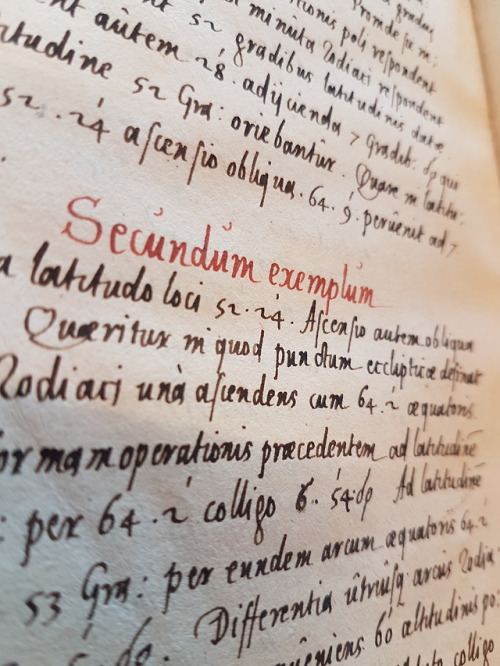 gradus
tionis poli respondent Proinde si in:
minuta Zodiaci respondent
ent 52 gradibus latitudinis datæ.
ent autem 28. adijcienda 7 gradib: dp qui
titudine 52 Gra: oriebantur. Quare in latitu:
52 . 24 ascensio obliqua. 64. 9. pervenit ad 7
Secundum exemplum
a latitudo loci 52. 24. Ascensio autem obliqua
Quæritur in quod punctum eclipticæ definat
Zodiaci unà ascendens cum 64. 2 æquatoris
ormam operationis præcedentem ad latitudinẽ
: per 64. 2 colligo 6. 54 dp Ad latitudinẽ
53 Gra: per eundem arcum æquatoris 64. 2
Differentia utriusq arcus Zodia
veniens 60 altitudinis po:
colligo